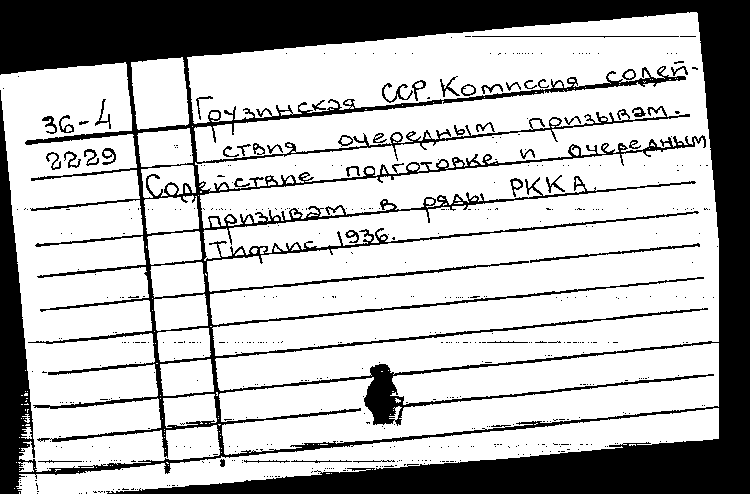 36-4
2229
Грузинская ССР. Комиссия содей-
ствия очередным призывам.
Содействие подготовке и очередным
призывам в ряды РККА.
Тифлис, 1936.